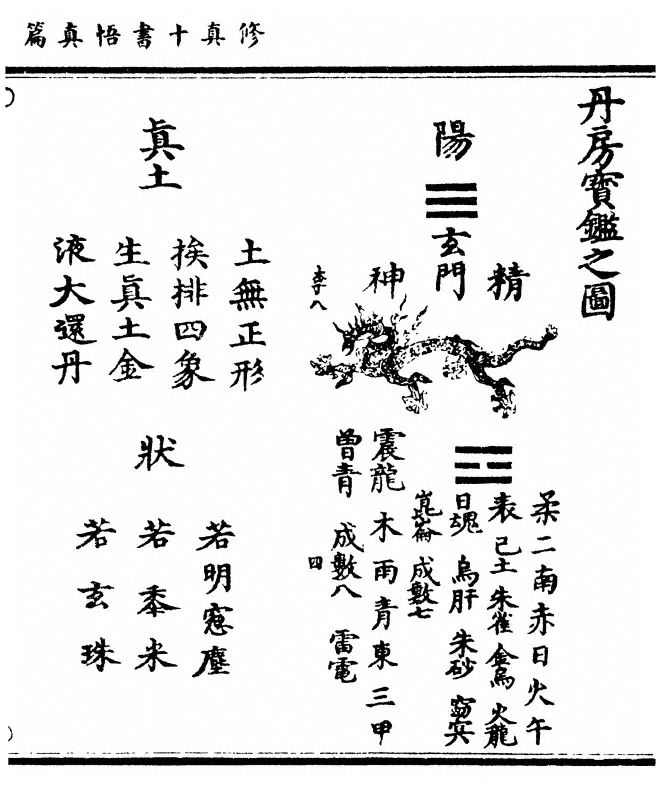 修真十書悟真篇
丹房寶鑑之圖
陽
玄門
精
神
李八
柔二南赤日火午
表己土朱雀金烏火龍
日魂烏肝朱砂
崑崙成數七
震龍木雨青東三甲
曾青成數八雷電
四
真土
土無正形
挨排四象
生真土金
液大還丹
狀
若明窓塵
若黍米
若玄珠